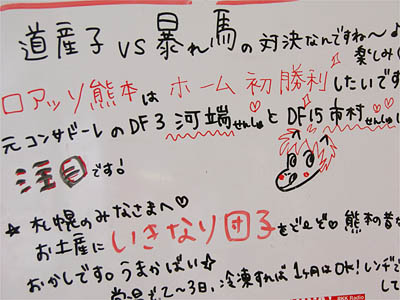 道産子VS暴れ馬の対決なんですね〜♪
楽しみ(
ロアッソ熊本はホーム初勝利したいです
元コンサドーレのDF3河端せんしゅ♡とDF15市村せんしゅ♡
注目です!
☆札幌のみなさまへ♡
お土産にいきなり団子をどーぞ♡熊本の昔な
おかしです。うまかばい☆
常温で2〜3日、冷凍すれば1ヶ月はOK!レンチで
して
RKK Radio